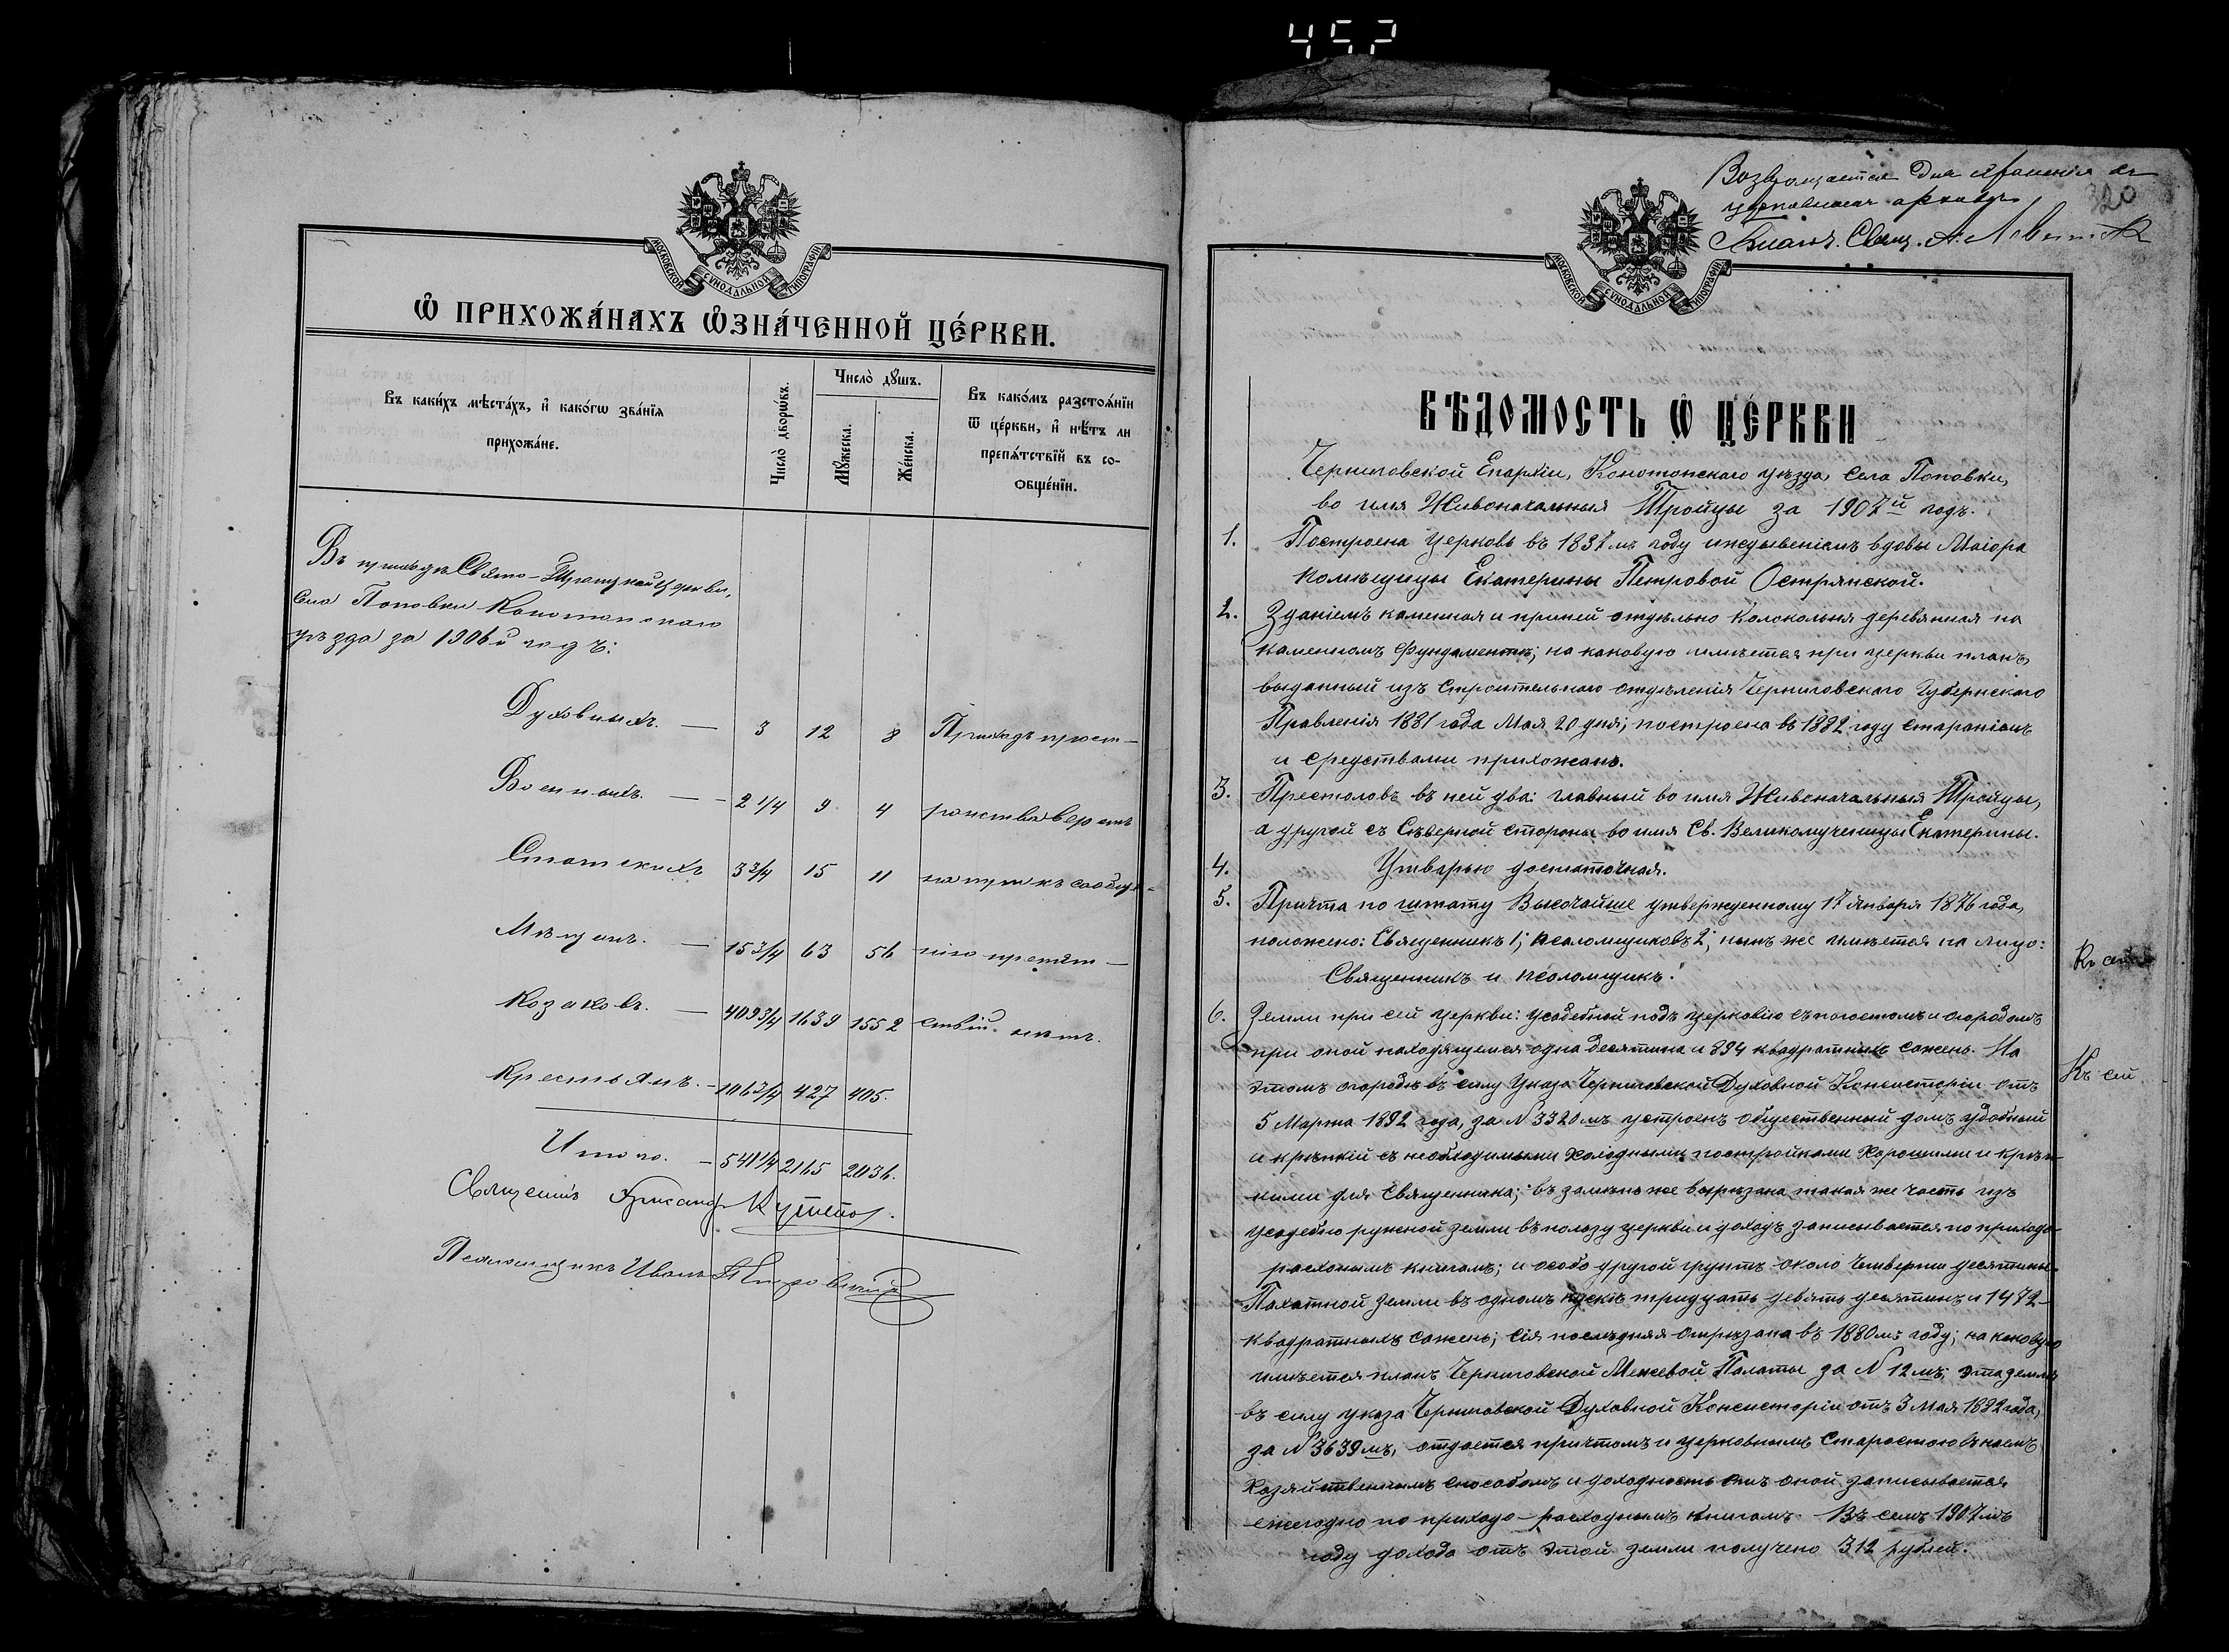 452
МОСКОВСКОЙ СΥНОДАЛЬНОЙ ТИПОГРАФІИ
Ѽ ПРИХОЖА́НАХЪ Ѡ҆ЗНА́ЧЕННОЙ ЦЕ́РКВИ.
Въ каки́хъ мѣста́хъ, и҆ како́гѡ зва́нїѧ
прихожа́не.
Число̀ дворѡ́въ.
Число̀ дꙋшъ.
Мꙋ́жеска.
Же́нска.
Въ како́мъ разстоѧ́нїи
ѿ це́ркви, и҆ нѣ́тъ ли
препѧ́тствїй въ со-
ѻбще́нїи.
Въ приходѣ Свято-Троицкой церкви,
села Поповки Конотопскаго
уѣзда за 1906й годъ:
Духовныхъ. — 3 12 8 Приходъ прост-
Военныхъ. — 2 1/4 9 4
Статскихъ 3 3/4 15 11 на пути къ сообще-
Мѣщанъ. — 15 3/4 63 56 нію препят-
Козаковъ. — 409 3/4 1639 1552 ствій нѣтъ.
Крестьянъ. — 106 3/4 427 405.
Итого. — 541 1/4 2165 2036.
Священникъ
Псаломщикъ Иванъ
Возвращается для храненія въ
церковномъ архивѣ
Свящ. А.
320
МОСКОВСКОЙ СΥНОДАЛЬНОЙ ТИПОГРАФІИ
ВѢДОМОСТЬ Ѽ ЦЕ́РКВИ
Черниговской Епархіи, Конотопскаго уѣзда, села Поповки,
во имя Живоначальныя Тройцы за 1907й годъ.
1. Построена церковь въ 1837мъ году иждивеніемъ вдовы Маіора
помѣщицы Екатерины Петровой Острянской.
2. Зданіемъ каменная и при ней отдѣльно колокольня деревянная на
каменномъ фундаментѣ; на каковую имѣется при церкви планъ,
выданный изъ Строительнаго отдѣленія Черниговскаго Губернскаго
Правленія 1881 года Мая 20 дня; построена въ 1882 году стараніемъ
и средствами прихожанъ.
3. Престоловъ въ ней два: главный во имя Живоначальныя Тройцы,
а другой съ Сѣверной стороны во имя Св. Великомученицы Екатерины.
4. Утварью достаточная.
5. Причта по штату Высочайше утвержденному 17 Января 1876 года,
положено: Священникъ 1; псаломщиковъ 2; нынѣ же имѣется на лицо:
Священникъ и псаломщикъ.
6. Земли при сей церкви: усадебной подъ церковію съ погостомъ и огородомъ
при оной находящемся одна десятина и 894 квадратныхъ сажень. На
этомъ огородѣ въ силу Указа Черниговской Духовной Консисторіи отъ
5 Марта 1892 года, за N 3320мъ устроенъ общественный домъ удобный
и крѣпкій съ необходимыми холодными постройками хорошими и крѣп-
кими для Священника; въ замѣнъ же вырѣзана такая же часть изъ
усадебно ружной земли въ пользу церкви и доходъ записывается по приходо-
расхонымъ книгамъ; и особо другой грунтъ около четверти десятины.
Пахатной земли въ одномъ кускѣ тридцать девять десятинъ и 1472
квадратныхъ сажень; сія послѣдняя отрѣзана въ 1880мъ году; на каковую
имѣется планъ Черниговской Межевой Палаты за N 12мъ; эта земля
въ силу указа Черниговской Духовной Консисторіи отъ 3 Мая 1882 года,
за N 3639мъ, отдается причтомъ и церковнымъ Старостою въ наемъ
хозяйственнымъ способомъ и доходность отъ оной записывается
ежегодно по приходо-расходнымъ книгамъ. Въ семъ 1907мъ
году дохода отъ этой земли получено 312 рублей.
Къ сей